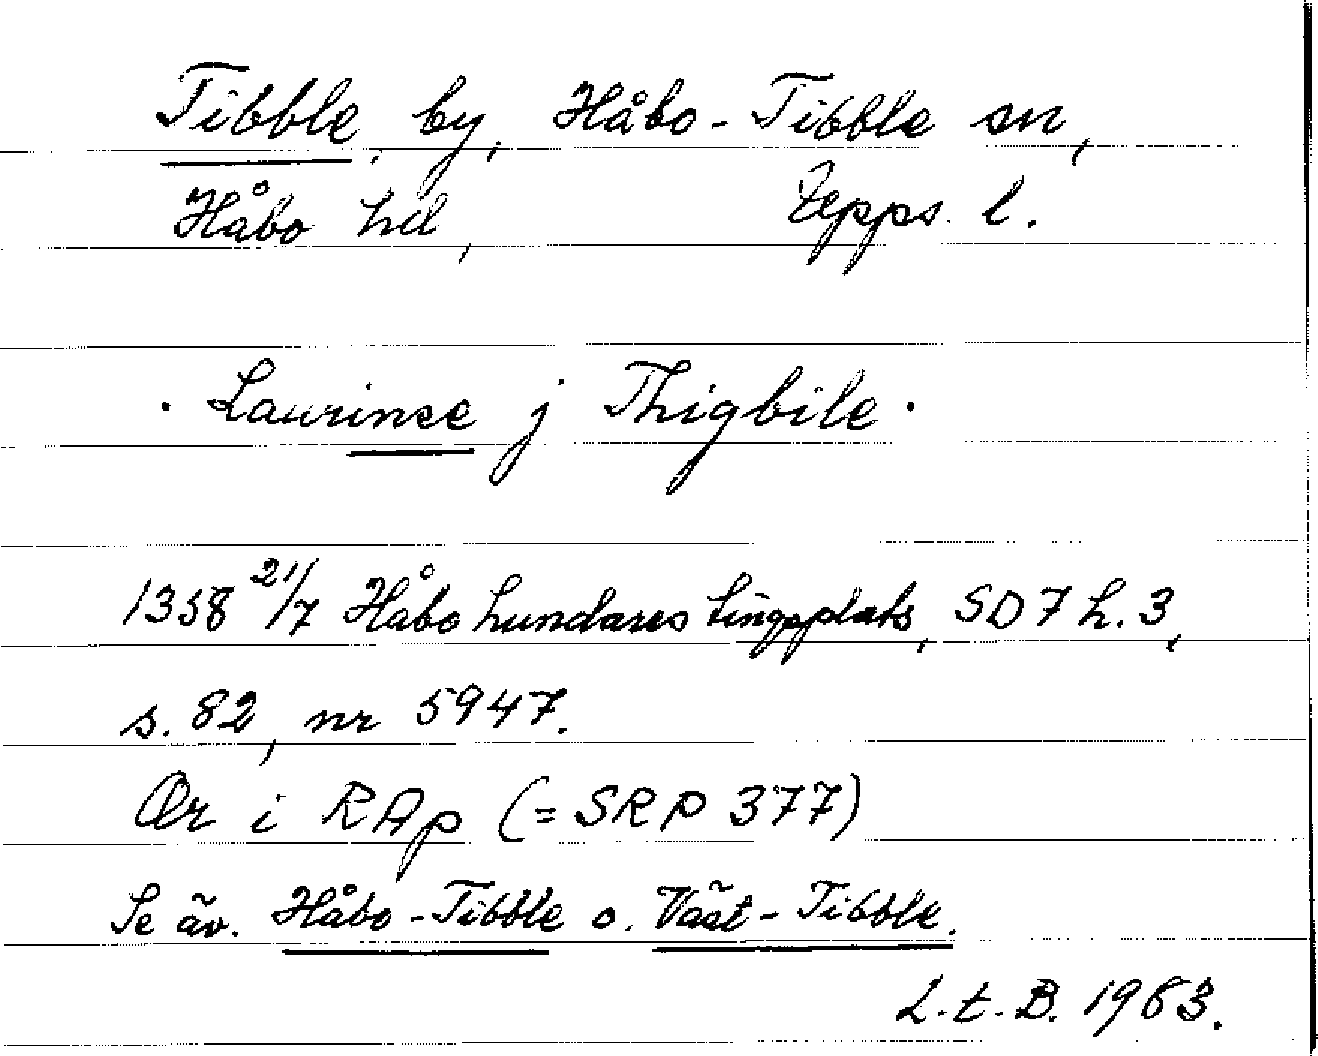 Tibble, by, Håbo-Tibble sn,
Håbo hd, Upps. l.
. Laurinse j Thigbile .
1358 21/7 Håbo hundares tingsplats, SD 7 h. 3,
s. 82, nr 5947.
Or i RAp (= SRP 377)
Se äv. Håbo-Tibble o. Väst-Tibble.
L.t.B. 1963.